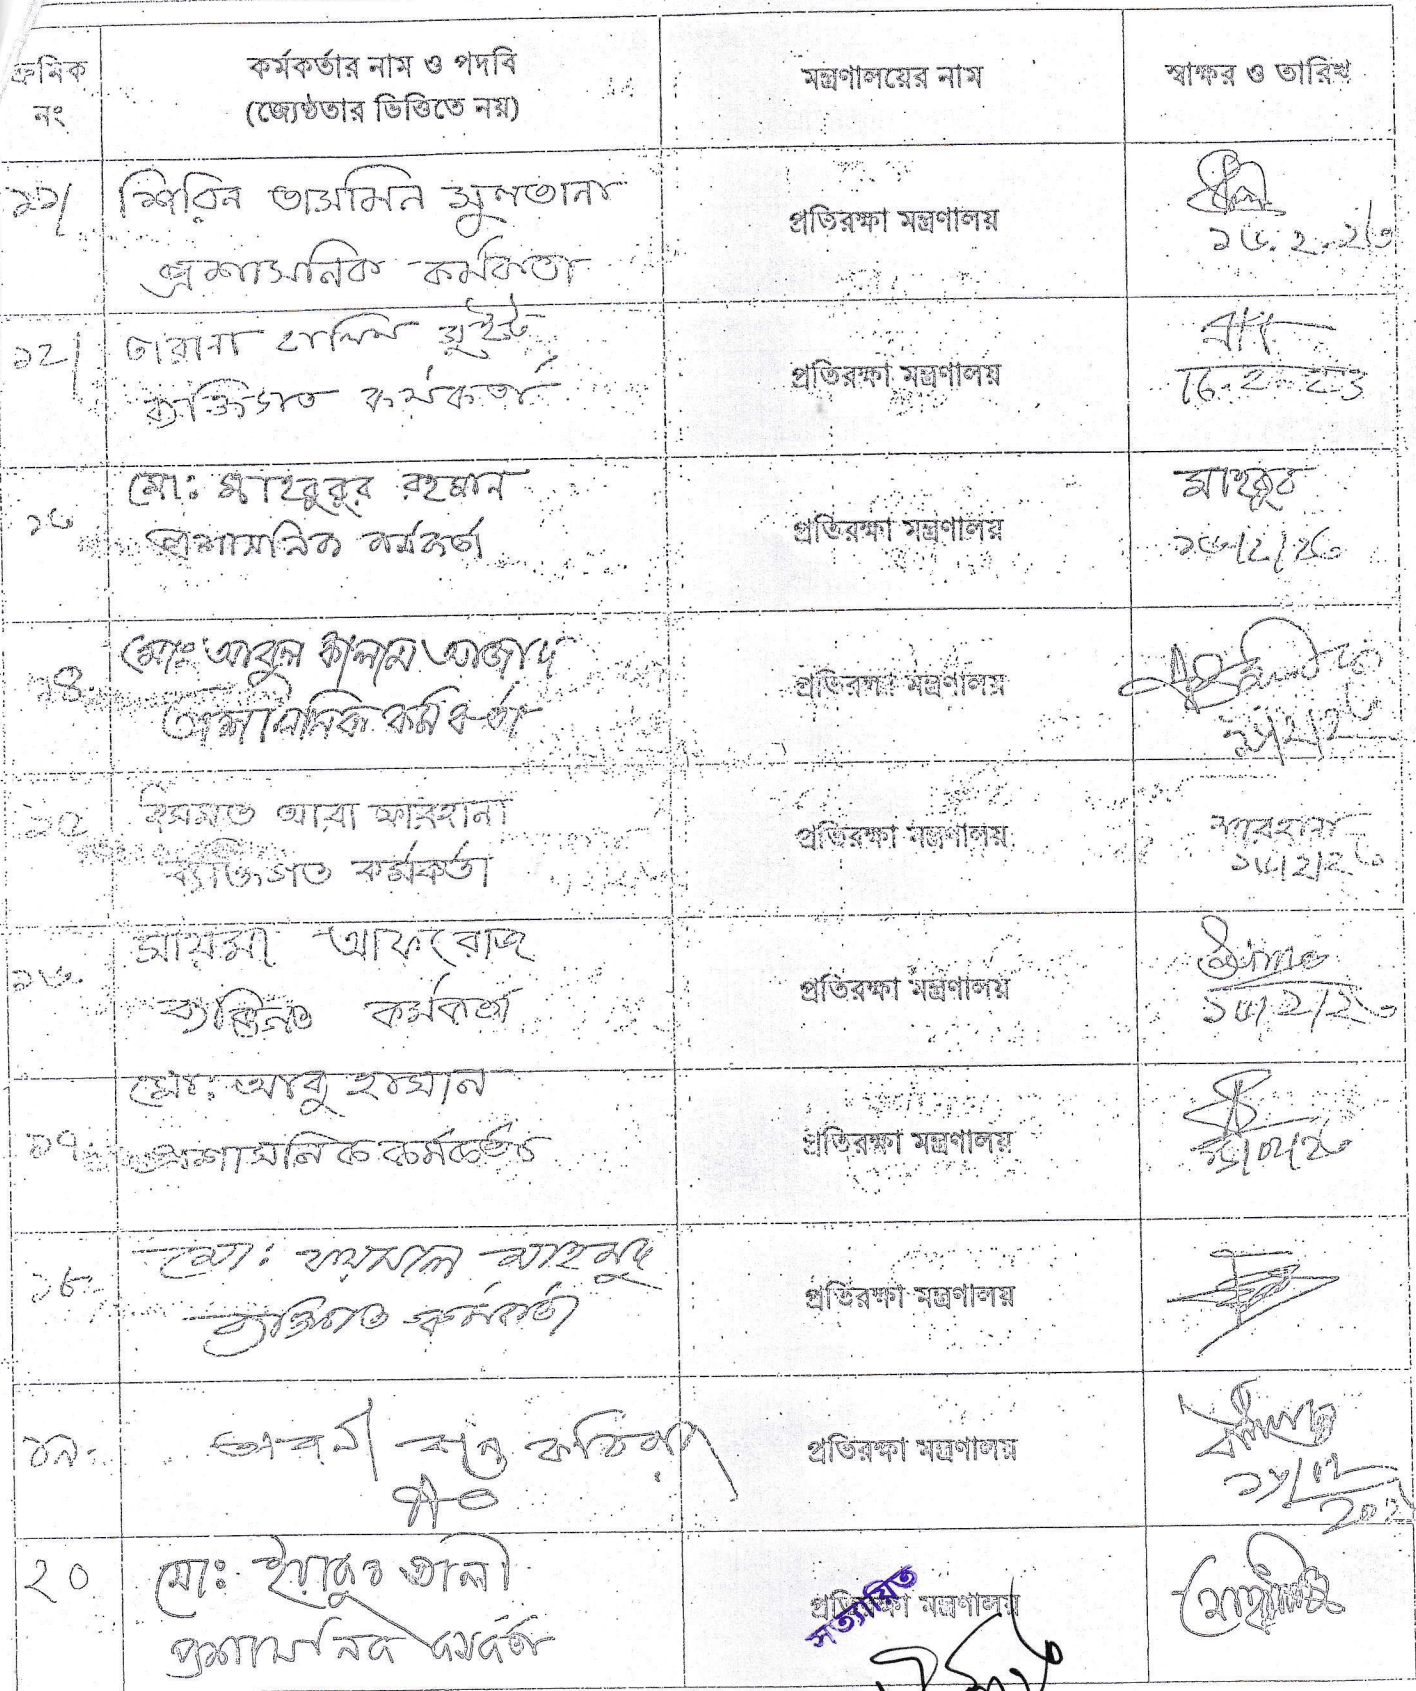 ক্রমিক
নং
কর্মকর্তার নাম ও পদবি
(জ্যেষ্ঠতার ভিত্তিতে নয়)
মন্ত্রণালয়ের নাম
স্বাক্ষর ও তারিখ
১১/
শিরিন তাসমিন সুলতানা
প্রশাসনিক কর্মকর্তা
প্রতিরক্ষা মন্ত্রণালয়
১৬.২.২৬
১২/
ব্যক্তিগত কর্মকর্তা
প্রতিরক্ষা মন্ত্রণালয়
১৩
মো: মাহবুবুর রহমান
প্রশাসনিক কর্মকর্তা
প্রতিরক্ষা মন্ত্রণালয়
মাহবুব
১৬/২/২৬
১৪.
মো: আবুল কালাম আজাদ
প্রশাসনিক কর্মকর্তা
প্রতিরক্ষা মন্ত্রণালয়
১৬/২/২৬
১৫
আরা ফারহানা
ব্যক্তিগত কর্মকর্তা
প্রতিরক্ষা মন্ত্রণালয়
ফারহানা
১৬/২/২৬
১৬.
সায়মা আফরোজ
ব্যক্তিগত কর্মকর্তা
প্রতিরক্ষা মন্ত্রণালয়
১৬/২/২৬
১৭.
মো: আবু হাসান
প্রশাসনিক কর্মকর্তা
প্রতিরক্ষা মন্ত্রণালয়
১৬/০২/২৬
১৮.
মো: ফয়সাল মাহমুদ
ব্যক্তিগত কর্মকর্তা
প্রতিরক্ষা মন্ত্রণালয়
১৯.
প্রতিরক্ষা মন্ত্রণালয়
২০
মো: ইয়াকুব আলী
প্রশাসনিক কর্মকর্তা
প্রতিরক্ষা মন্ত্রণালয়
সত্যায়িত